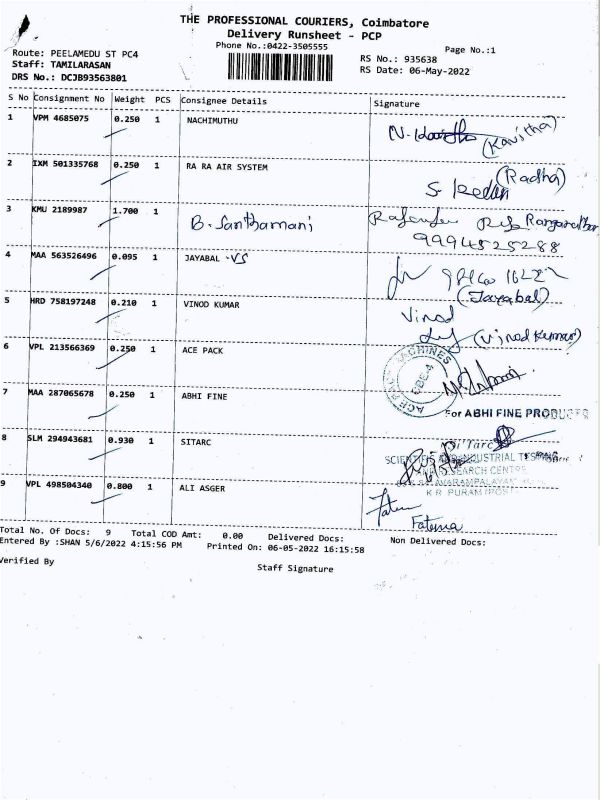 THE PROFESSIONAL COURIERS, Coimbatore
Delivery Runsheet - PCP
Phone No.:0422-3505555
Page No.:1
Route: PEELAMEDU ST PC4
Staff: TAMILARASAN
DRS No.: DCJB93563801
RS No.: 935638
RS Date: 06-May-2022
S No Consignment No Weight PCS Consignee Details Signature
1 VPM 4685075 0.250 1 NACHIMUTHU
(Kavitha)
2 IXM 501335768 0.250 1 RA RA AIR SYSTEM
(Radha)
3 KMU 2189987 1.700 1 B. Santhamani
9994525288
4 MAA 563526496 0.095 1 JAYABAL -VS
(Jayabal)
5 HRD 758197248 0.210 1 VINOD KUMAR Vinod
(Vinod Kumar)
6 VPL 213566369 0.250 1 ACE PACK
ACE PACK MACHINES
7 MAA 287065678 0.250 1 ABHI FINE
For ABHI FINE PRODUCTS
8 SLM 294943681 0.930 1 SITARC
SiTarc
SCIENTIFIC AND INDUSTRIAL TESTING
RESEARCH CENTRE
AVARAMPALAYAM
K R PURAM (POST)
9 VPL 498504340 0.800 1 ALI ASGER
Fatema
Total No. Of Docs: 9 Total COD Amt: 0.00 Delivered Docs: Non Delivered Docs:
Entered By :SHAN 5/6/2022 4:15:56 PM Printed On: 06-05-2022 16:15:58
Verified By
Staff Signature